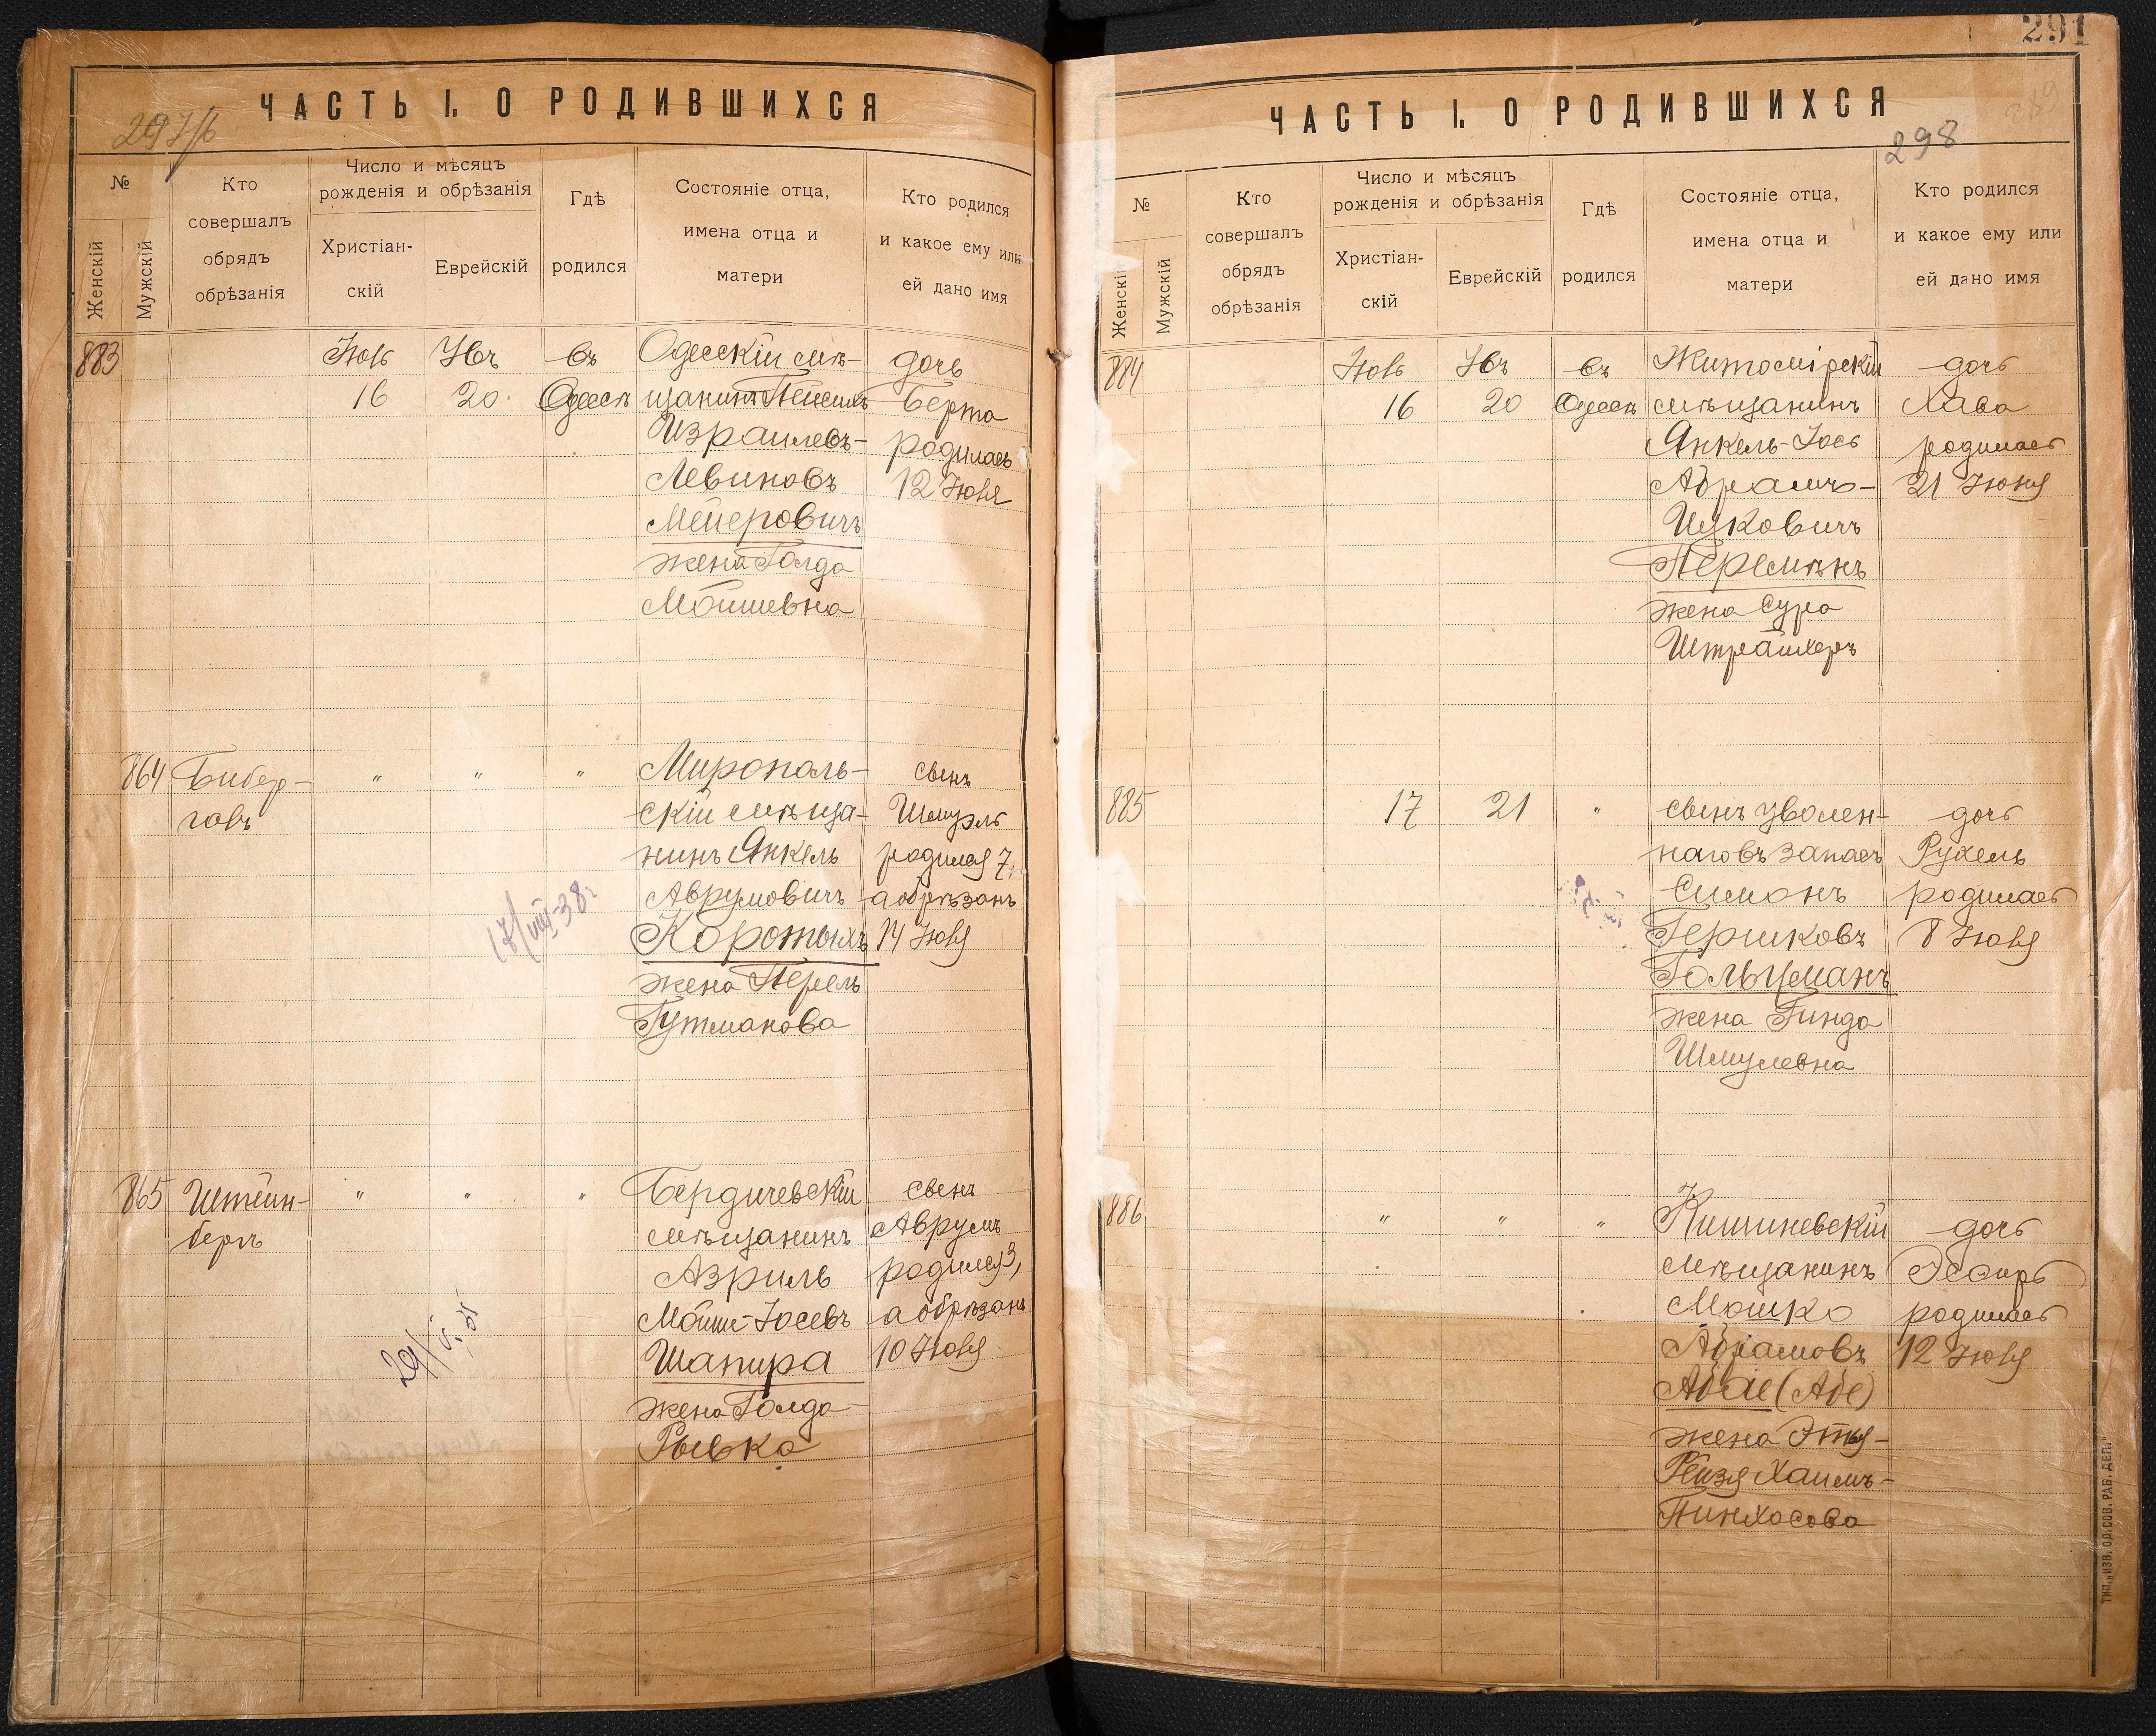 ЧАСТЬ I. О РОДИВШИХСЯ
№
Женскій
Мужскій
Кто
совершалъ
обрядъ
обрѣзанія
Число и мѣсяцъ
рожденія и обрѣзанія
Христіан-
скій
Еврейскій
Гдѣ
родился
Состояніе отца,
имена отца и
матери
Кто родился
и какое ему или
ей дано имя
883
Іюль
16
20
въ
Одессѣ
Одесскій мѣ-
щанинъ
Израилевъ-
Левиновъ
Мейеровичъ
жена Голда
Мойшевна
дочь
Берта
родилась
12 Іюля
864
Бибер-
галъ
"
"
"
Мирополь-
скій мѣща-
нинъ Янкель
Аврумовичъ
жена Перель
Гутманова
сынъ
Шмуэль
родился 7,
а обрѣзанъ
14 Іюля
17/VIII-38г
865
Штейн-
бергъ
"
"
"
Бердичевскій
мѣщанинъ
Азриль
Мойше-Іосевъ
Шапира
жена Голда-
Рывка
сынъ
Аврумъ
родился 3,
а обрѣзанъ
10 Іюля
291
ЧАСТЬ I. О РОДИВШИХСЯ
298
№
Женскій
Мужскій
Кто
совершалъ
обрядъ
обрѣзанія
Число и мѣсяцъ
рожденія и обрѣзанія
Христіан-
скій
Еврейскій
Гдѣ
родился
Состояніе отца,
имена отца и
матери
Кто родился
и какое ему или
ей дано имя
884
Іюль
16
20
въ
Одессѣ
Житомірскій
мѣщанинъ
Янкель-Іось
Абрамъ-
Ицковичъ
жена Сура
Штрайхеръ
дочь
Хава
родилась
21 Іюня
885
17
21
"
сынъ уволен-
наго въ запасъ
Симонъ
Гершковъ
Гольцманъ
жена Гинда
Шмулевна
дочь
Рухель
родилась
8 Іюля
886
"
"
"
Кишиневскій
мѣщанинъ
Мошко
Абрамовъ
(Абе)
жена Этя-
Рейзя Хаимъ-
Пинхасова
дочь
Эсфирь
родилась
12 Іюля
ТИП. „ИЗВ. ОД. СОВ. РАБ. ДЕП."